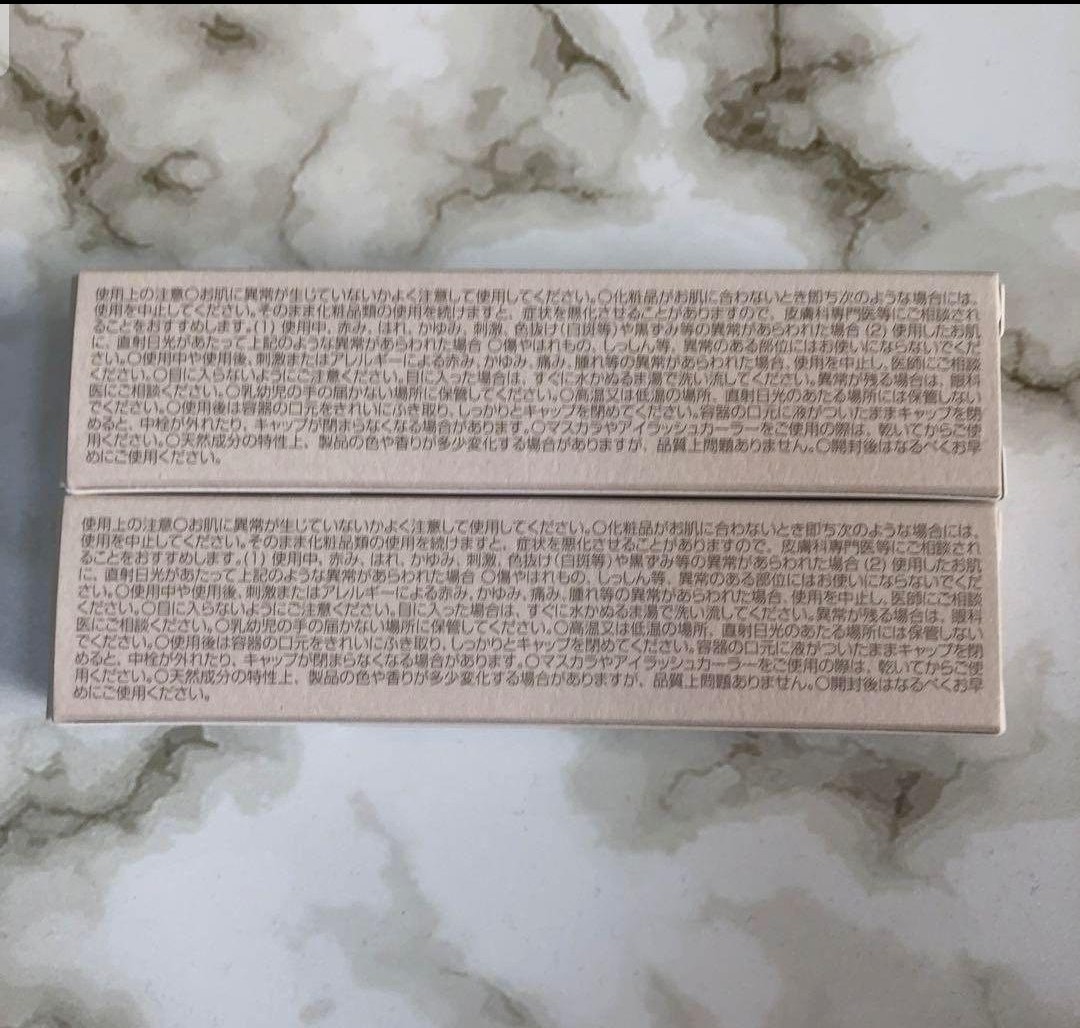 使用上の注意〇お肌に異常が生じていないかよく注意して使用してください。〇化粧品がお肌に合わないとき即ち次のような場合には、
使用を中止してください。そのまま化粧品類の使用を続けますと、症状を悪化させることがありますので、皮膚科専門医等にご相談され
ることをおすすめします。(1) 使用中、赤み、はれ、かゆみ、刺激、色抜け(白斑等)や黒ずみ等の異常があらわれた場合 (2) 使用したお肌
に、直射日光があたって上記のような異常があらわれた場合 〇傷やはれもの、しっしん等、異常のある部位にはお使いにならないでくだ
さい。〇使用中や使用後、刺激またはアレルギーによる赤み、かゆみ、痛み、腫れ等の異常があらわれた場合、使用を中止し、医師にご相談
ください。〇目に入らないようにご注意ください。目に入った場合は、すぐに水かぬるま湯で洗い流してください。異常が残る場合は、眼科
医にご相談ください。〇乳幼児の手の届かない場所に保管してください。〇高温又は低温の場所、直射日光のあたる場所には保管しない
でください。〇使用後は容器の口元をきれいにふき取り、しっかりとキャップを閉めてください。容器の口元に液がついたままキャップを閉
めると、中栓が外れたり、キャップが閉まらなくなる場合があります。〇マスカラやアイラッシュカーラーをご使用の際は、乾いてからご使
用ください。〇天然成分の特性上、製品の色や香りが多少変化する場合がありますが、品質上問題ありません。〇開封後はなるべくお早
めにご使用ください。
使用上の注意〇お肌に異常が生じていないかよく注意して使用してください。〇化粧品がお肌に合わないとき即ち次のような場合には、
使用を中止してください。そのまま化粧品類の使用を続けますと、症状を悪化させることがありますので、皮膚科専門医等にご相談され
ることをおすすめします。(1) 使用中、赤み、はれ、かゆみ、刺激、色抜け(白斑等)や黒ずみ等の異常があらわれた場合 (2) 使用したお肌
に、直射日光があたって上記のような異常があらわれた場合 〇傷やはれもの、しっしん等、異常のある部位にはお使いにならないでくだ
さい。〇使用中や使用後、刺激またはアレルギーによる赤み、かゆみ、痛み、腫れ等の異常があらわれた場合、使用を中止し、医師にご相談
ください。〇目に入らないようにご注意ください。目に入った場合は、すぐに水かぬるま湯で洗い流してください。異常が残る場合は、眼科
医にご相談ください。〇乳幼児の手の届かない場所に保管してください。〇高温又は低温の場所、直射日光のあたる場所には保管しない
でください。〇使用後は容器の口元をきれいにふき取り、しっかりとキャップを閉めてください。容器の口元に液がついたままキャップを閉
めると、中栓が外れたり、キャップが閉まらなくなる場合があります。〇マスカラやアイラッシュカーラーをご使用の際は、乾いてからご使
用ください。〇天然成分の特性上、製品の色や香りが多少変化する場合がありますが、品質上問題ありません。〇開封後はなるべくお早
めにご使用ください。